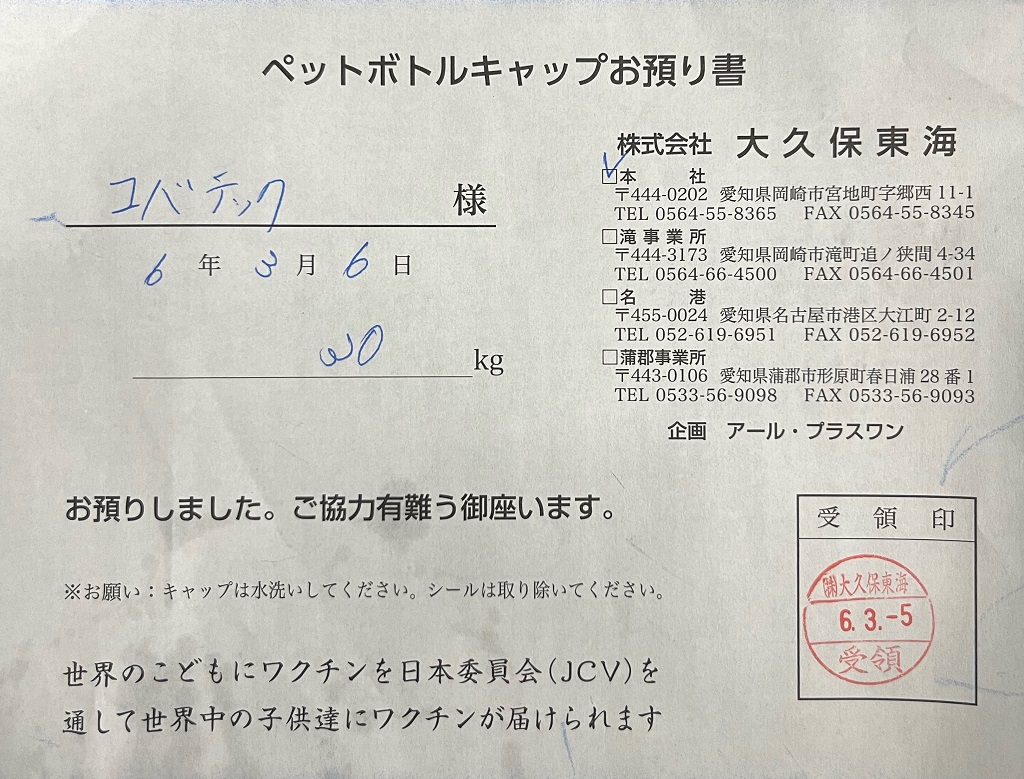 ペットボトルキャップお預り書
コバテック 様
6 年 3 月 6 日
30 kg
株式会社 大久保東海
□本 社
〒444-0202 愛知県岡崎市宮地町字郷西 11-1
TEL 0564-55-8365 FAX 0564-55-8345
□滝事業所
〒444-3173 愛知県岡崎市滝町追ノ狭間 4-34
TEL 0564-66-4500 FAX 0564-66-4501
□名 港
〒455-0024 愛知県名古屋市港区大江町 2-12
TEL 052-619-6951 FAX 052-619-6952
□蒲郡事業所
〒443-0106 愛知県蒲郡市形原町春日浦 28 番 1
TEL 0533-56-9098 FAX 0533-56-9093
企画 アール・プラスワン
お預りしました。ご協力有難う御座います。
※お願い：キャップは水洗いしてください。シールは取り除いてください。
世界のこどもにワクチンを日本委員会(JCV)を
通して世界中の子供達にワクチンが届けられます
受 領 印
㈱大久保東海
6. 3. -5
受領